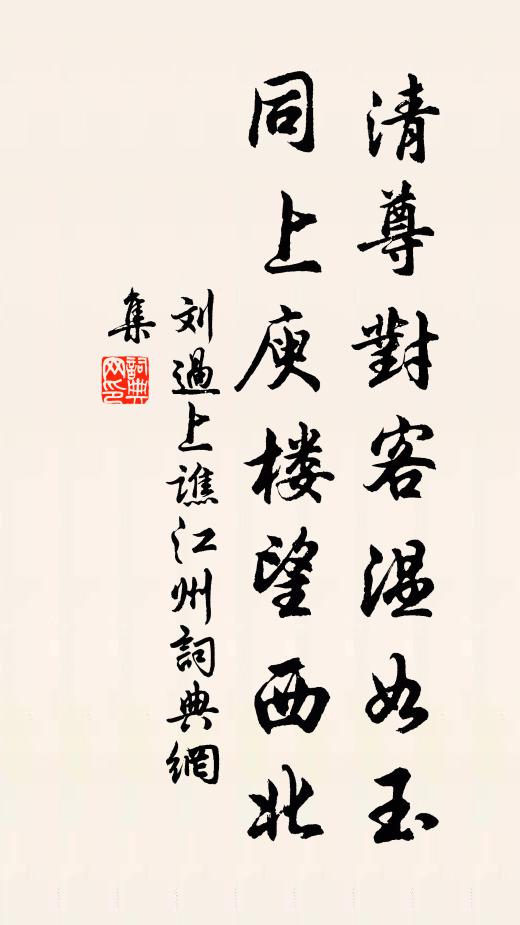 清尊對客温如玉
同上庾楼望西北
刘過上譙江州詞典網
集
詞典网印